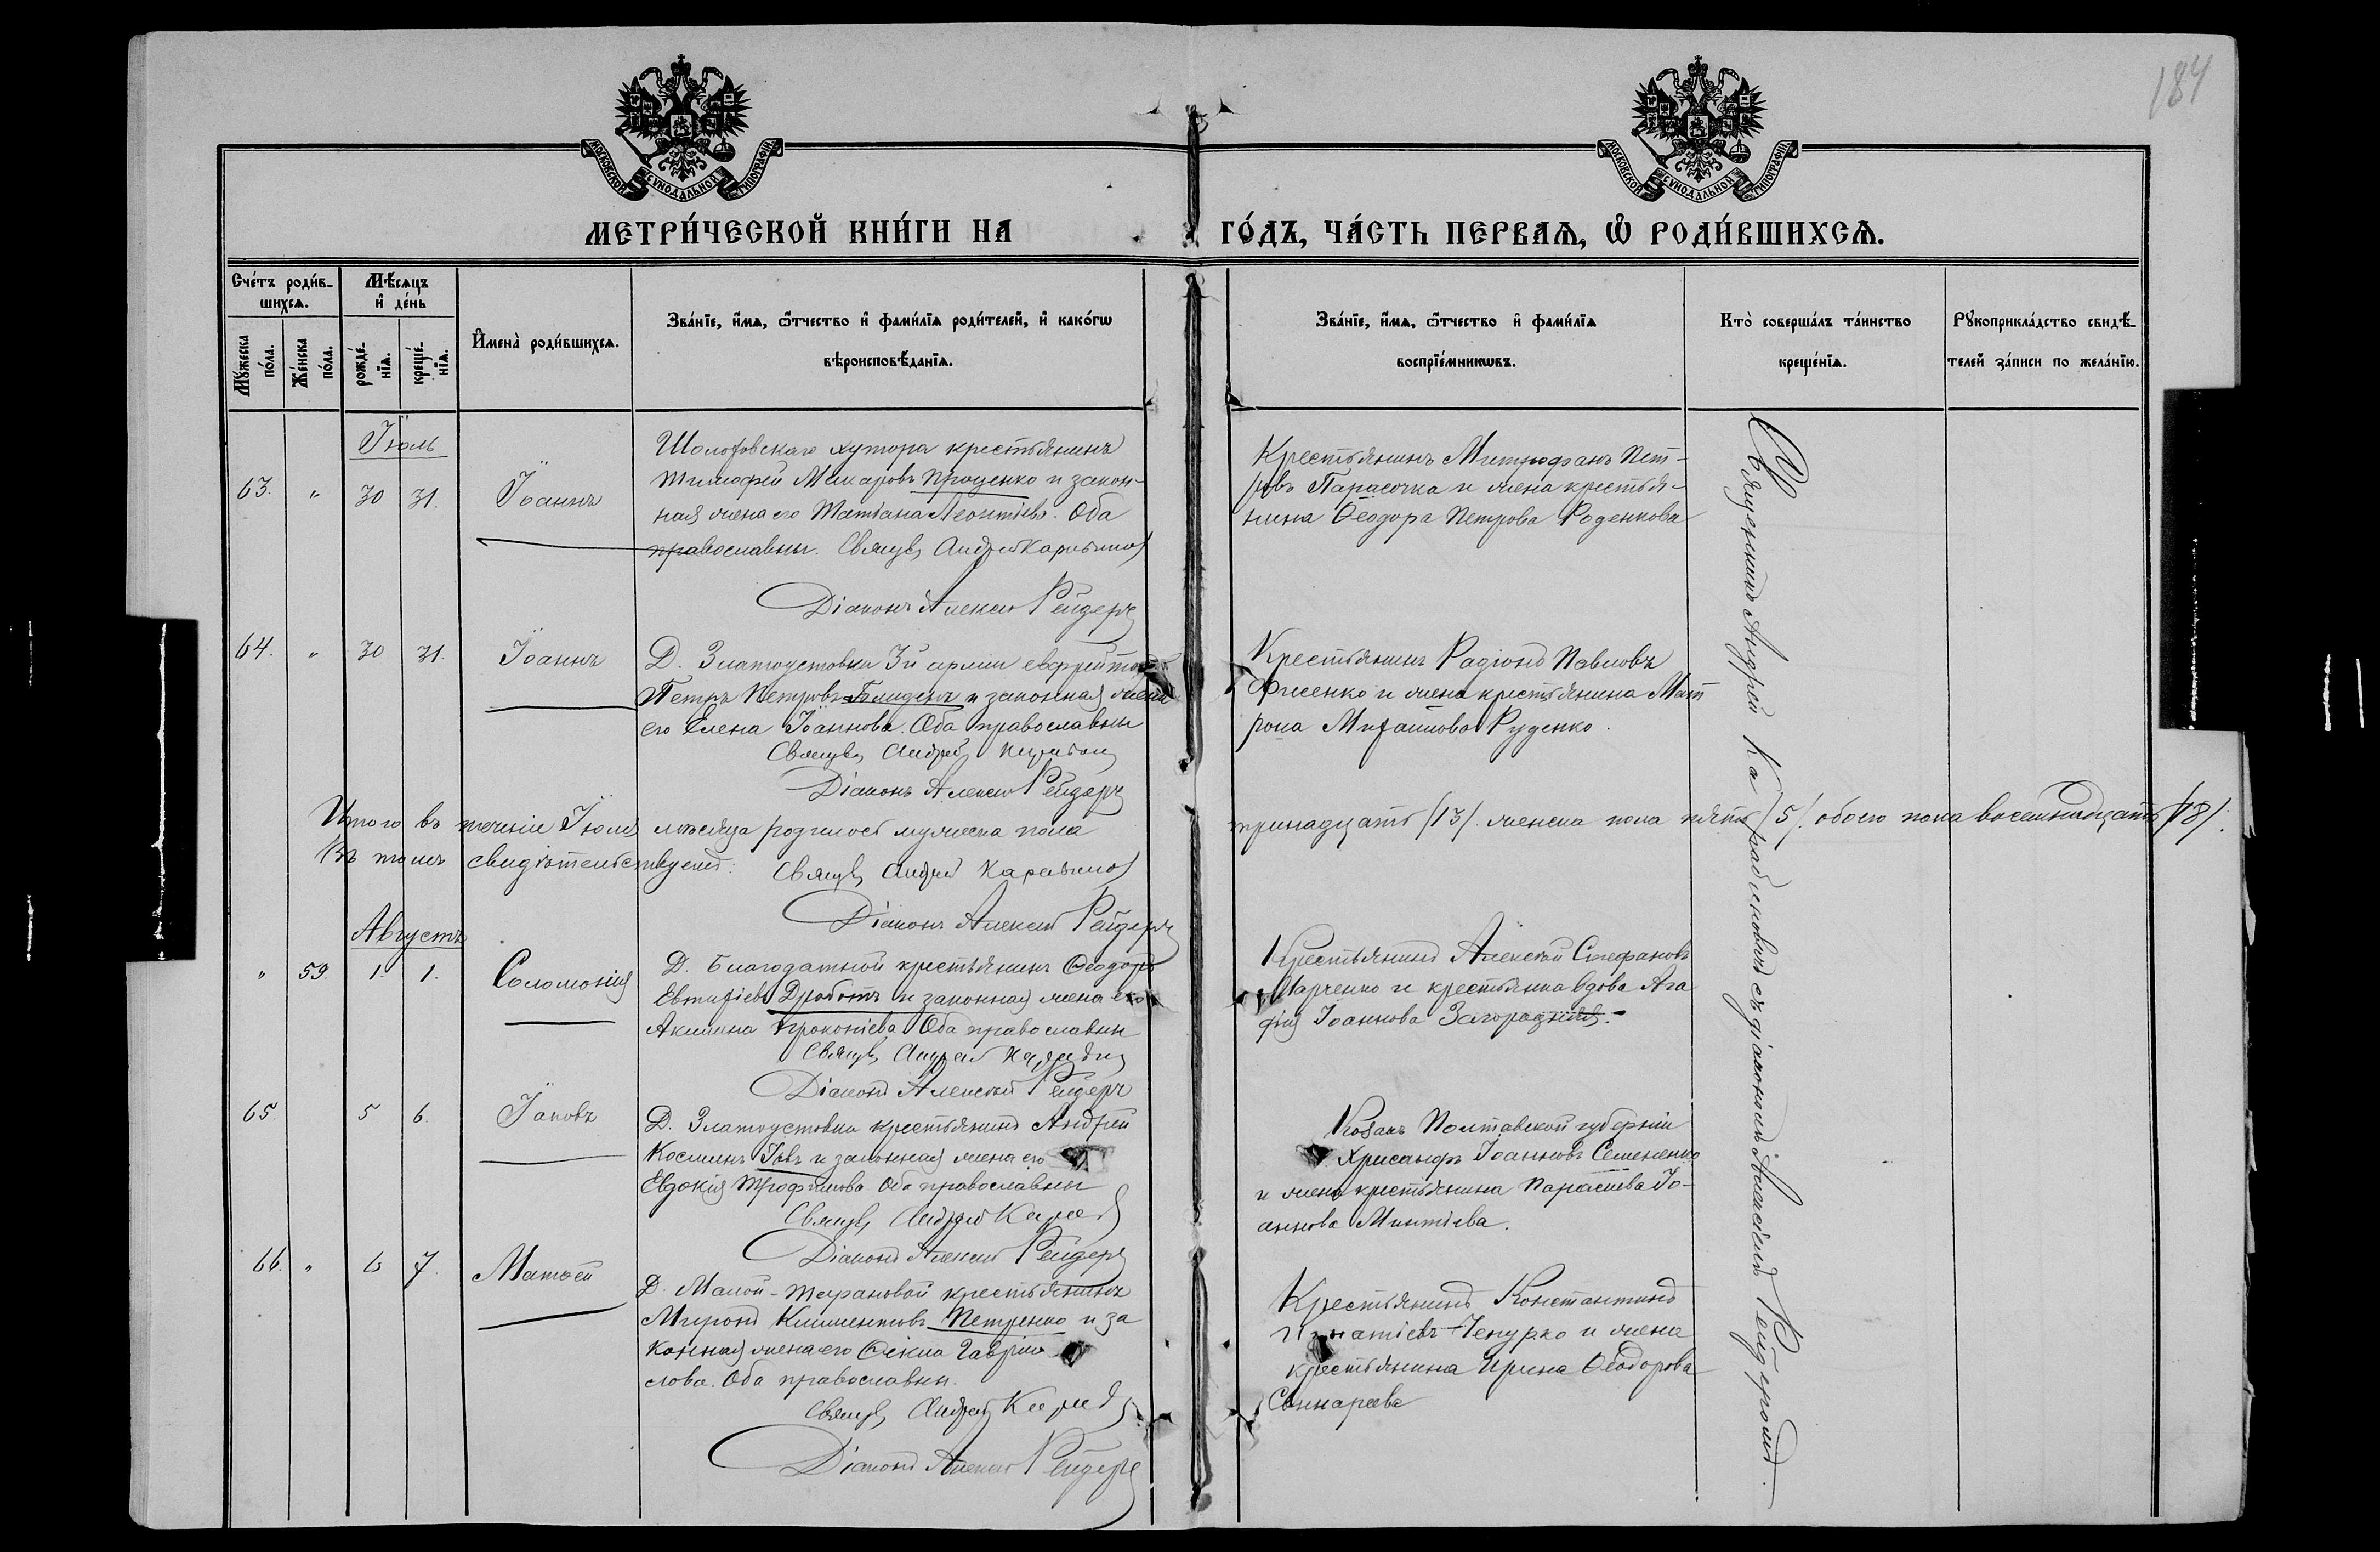 184
МОСКОВСКОЙ СѴНОДАЛЬНОЙ ТИПОГРАФІИ
МОСКОВСКОЙ СѴНОДАЛЬНОЙ ТИПОГРАФІИ
МЕТРИ́ЧЕСКОЙ КНИ́ГИ НА ГО́ДЪ, ЧА́СТЬ ПЕРВАѦ, Ѡ РОДИ́ВШИХСѦ.
Сче́тъ роди́в-
шихсѧ.
Мꙋжеска по́ла.
Же́нска по́ла.
Мѣ́сѧцъ
и҆ де́нь
рожде́-
нїѧ.
креще́-
нїѧ.
И҆мена̀ роди́вшихсѧ.
Зва́нїе, и҆́мѧ, ѻ҆́тчество и҆ фами́лїѧ роди́телей, и҆ како́гѡ
вѣроисповѣ́данїѧ.
Зва́нїе, и҆́мѧ, ѻ҆́тчество и҆ фами́лїѧ
воспрїе́мникѡвъ.
Кто̀ соверша́лъ та́инство
креще́нїѧ.
Рꙋкоприкла́дство свидѣ́-
телей за́писи по жела́нїю.
Іюль
63. " 30 31. Іоаннъ
Шолоховскаго хутора крестьянинъ
Тимофей Макаровъ Проценко и закон-
ная жена его Татіана Леонтіева. Оба
православны. Свящ. Андрей
Діаконъ Алексій Рейдеръ
Крестьянинъ Митрофанъ Пет-
ровъ Парасочка и жена крестья-
нина Ѳеодора Петрова Роденкова
64. " 30 31. Іоаннъ
Д. Златоустовки 3й арміи ефрейторъ
Петръ Петровъ и законная жена
его Елена Іоаннова. Оба православны
Свящ. Андрей
Діаконъ Алексій Рейдеръ
Крестьянинъ Радіонъ Павловъ
Фисенко и жена крестьянина Мат
рона Михаилова Руденко.
Итого въ теченіи Іюля мѣсяца родилось мужеска пола тринадцать /13/. женска пола пять /5/. обоего пола восемнадцать /18/.
Въ томъ свидѣтельствуемъ: Свящ. Андрей
Діаконъ Алексій Рейдеръ
Августъ
" 59. 1. 1. Соломонія
Д. Благодатной крестьянинъ Ѳеодоръ
Евтихіевъ Дроботъ и законная жена его
Акилина Прокопіева Оба православны
Свящ. Андрей
Діаконъ Алексій Рейдеръ
Крестьянинъ Алексѣй Стефановъ
Марченко и крестьянка вдова Ага
фія Іоаннова Загородняя.
65 5 6. Іаковъ
Д. Златоустовки крестьянинъ Андрей
Косминъ и законная жена его
Евдокія Трофимова Оба православны
Свящ. Андрей
Діаконъ Алексій Рейдеръ
Козакъ Полтавской губерніи
Хрисанфъ Іоанновъ Семененко
и жена крестьянина Параскева Іо-
аннова
66. " 6 7. Матѳей
Д. Малой-Тарановой крестьянинъ
Миронъ Климентовъ Петренко и за
конная жена его Ѳекла Гаврии
лова. Оба православны.
Свящ. Андрей
Діаконъ Алексій Рейдеръ
Крестьянинъ Константинъ
Игнатіевъ Чепурко и жена
крестьянина Ирина Ѳеодорова
Священникъ Андрей съ діакономъ Алексіемъ Рейдеромъ.